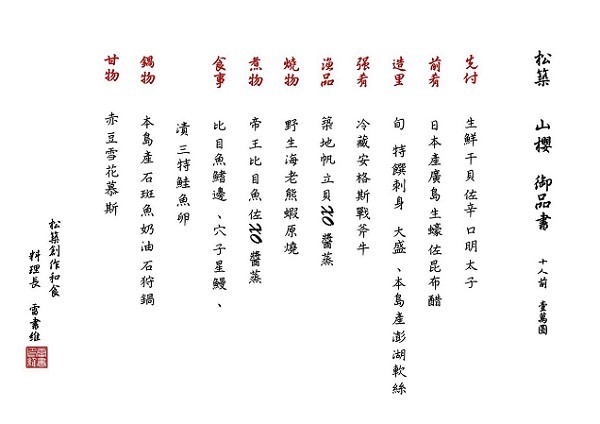 松築 山櫻 御品書 十人前 壹萬圓
先付 生鮮干貝佐辛口明太子
前肴 日本產廣島生蠔佐昆布醋
造里 旬 特饌刺身 大盛、本島產澎湖軟絲
强肴 冷藏安格斯戰斧牛
漁品 築地帆立貝XO醬蒸
燒物 野生海老熊蝦原燒
煮物 帝王比目魚佐XO醬蒸
食事 比目魚鰭邊、穴子星鰻、
漬 三特鮭魚卵
鍋物 本島產石斑魚奶油石狩鍋
甘物 赤豆雪花慕斯
松築創作和食
料理長 雷書維